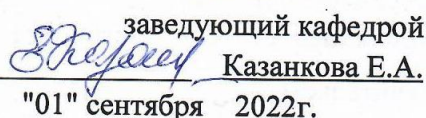 заведующий кафедрой
Казанкова Е.А.
"01" сентября 2022г.